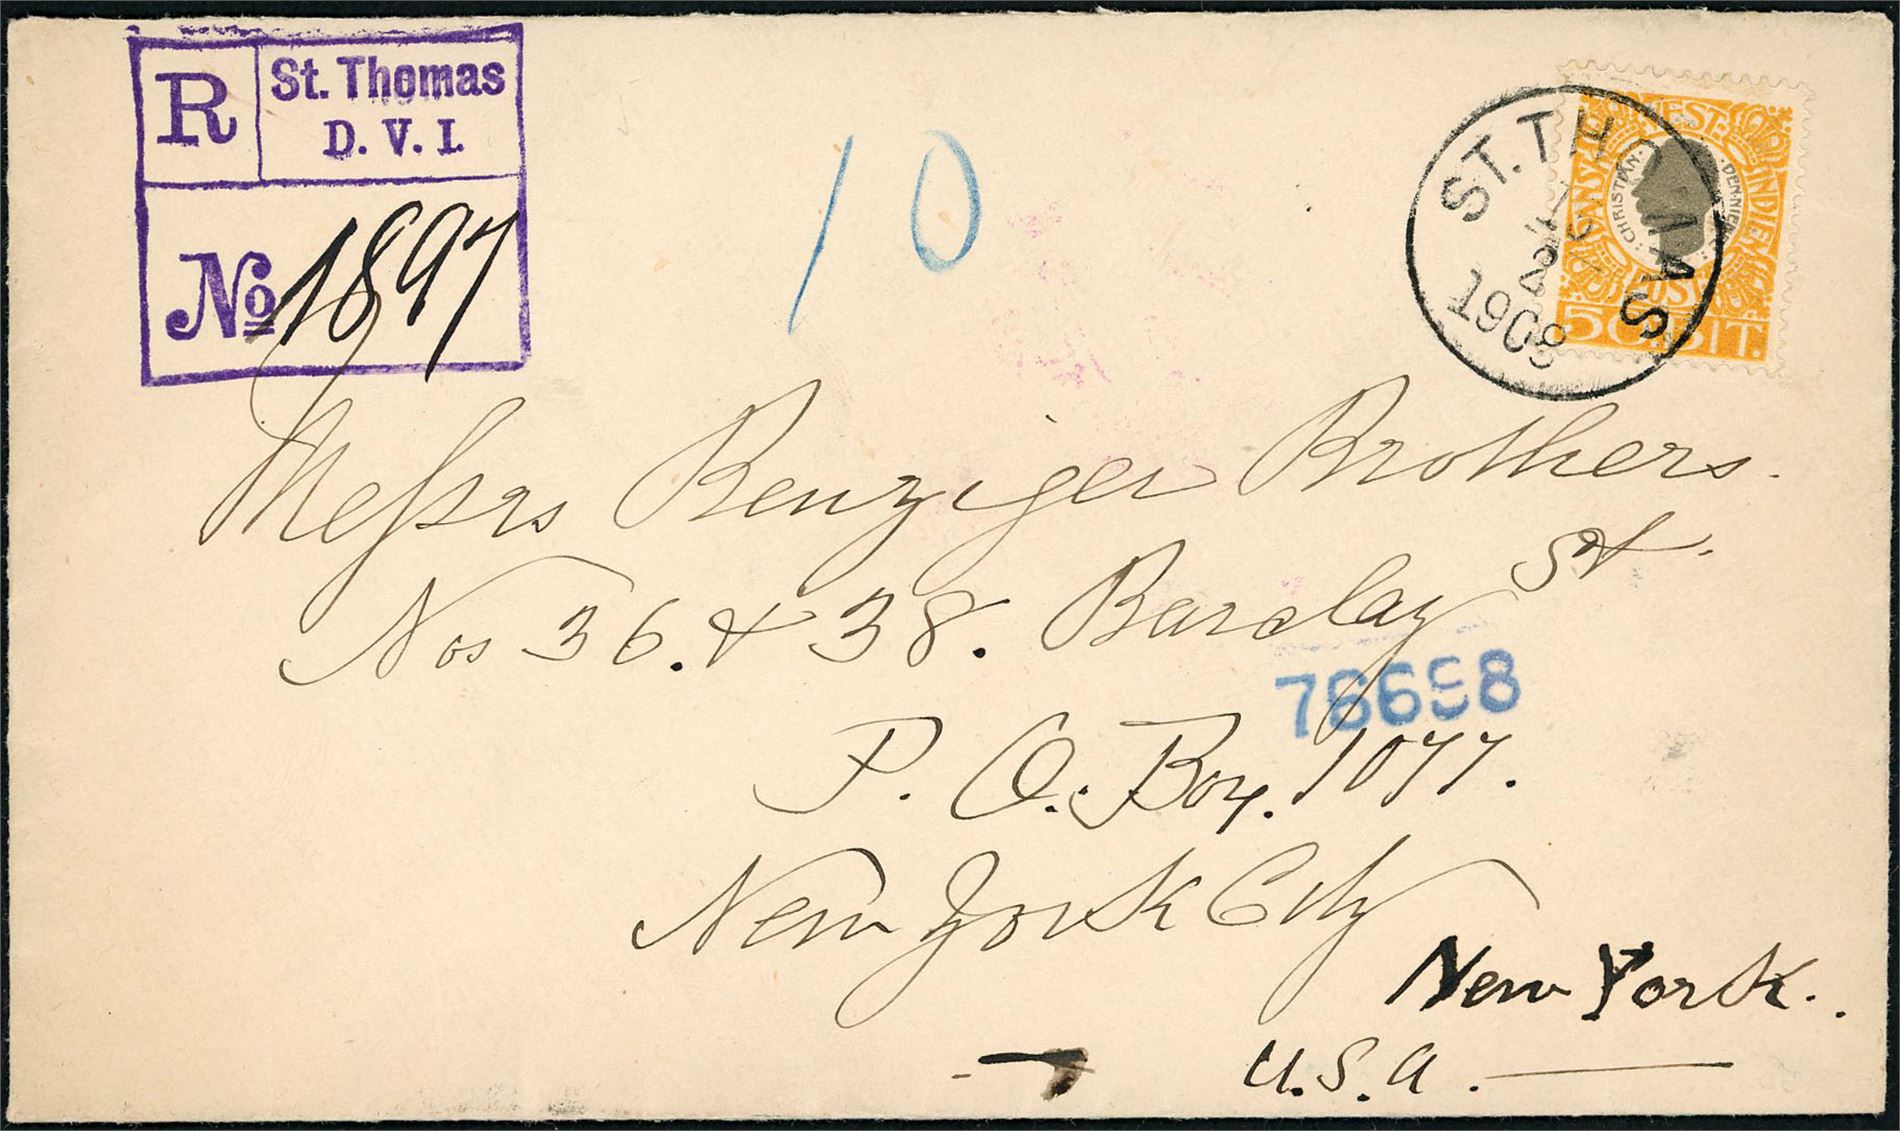 R St. Thomas
D. V. I.
No 1897
10
ST. THOMAS
1908
DANSK VESTINDIEN
CHRISTIAN · DEN NIENDE
POST
50 BIT.
Messrs Benziger Brothers.
Nos 36. & 38. Barclay St.
76698
P. O. Box. 1077.
New York City
New York.
U.S.A.